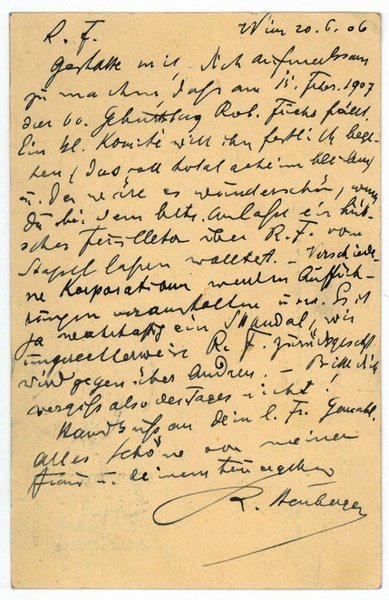 Wien 20.6.06
R. F.
Gestatte mir, Dich aufmerksam
zu machen, daß am 15. Febr. 1907
der 60. Geburtstag Rob. Fuchs fällt.
Ein kl. Komité will ihn festlich bege-
hen, (das soll total geheim bleiben)
u. da wäre es wunderschön, wenn
Du bei dem betr. Anlaße ein hüb-
sches Feuilleton über R. F. vom
Stapel laßen wolltest. – Verschiede-
ne Korporationen werden Aufführ-
ungen veranstalten u. s. Es ist
ja wahrhaftig ein Skandal, wie
ungerechterweise R. F. zurückgesetzt
wird gegenüber Andren. – Bitte Dich
vergiß also des Tages nicht!
Handkuß an Dein l. Fr. Gemahl.
Alles Schöne von meiner
Frau u. Deinem
R. Heuberger